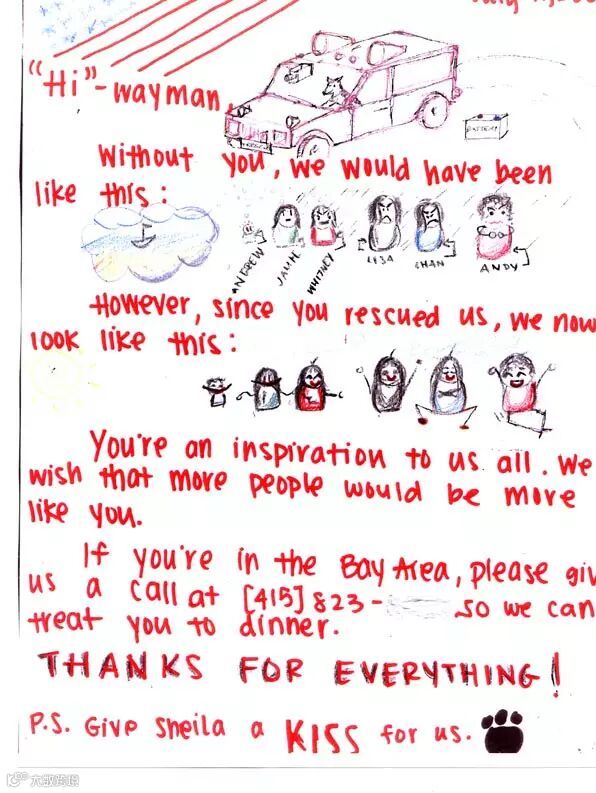 "Hi"-wayman,
BATTERY
Without you, we would have been
like this:
ANDREW JAMIE WHITNEY LISA CHAN ANDY
However, since you rescued us, we now
look like this:
You're an inspiration to us all. We
wish that more people would be more
like you.
If you're in the Bay Area, please giv
us a call at [415] 823- so we can
treat you to dinner.
THANKS FOR EVERYTHING!
P.S. Give Sheila a KISS for us.
大数跨境